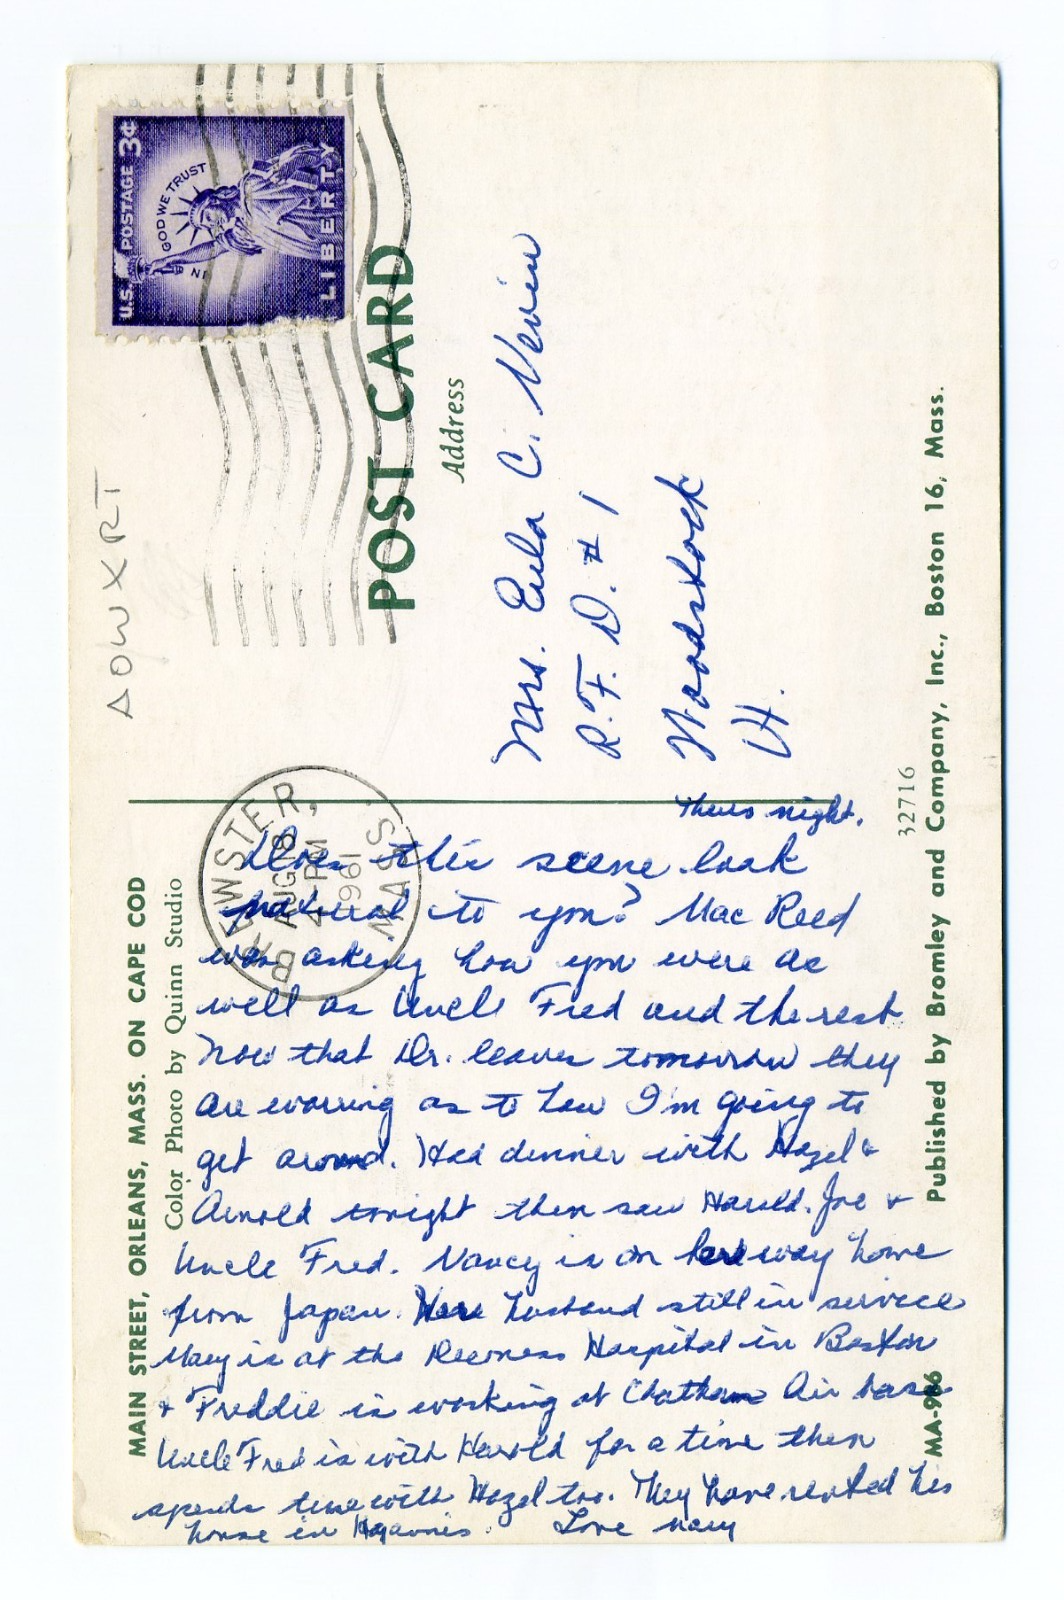 U.S. POSTAGE 3¢
IN GOD WE TRUST
LIBERTY
AOWXRT
POST CARD
Address
Mrs. Eula C. Nevin
R.F.D. # 1
Woodstock
Vt.
BREWSTER, MASS.
AUG 18
4-PM
1961
MAIN STREET, ORLEANS, MASS. ON CAPE COD
Color Photo by Quinn Studio
Thurs night.
Does this scene look
natural to you? Mac Reed
was asking how you were as
well as Uncle Fred and the rest
Now that Dr. leaves tomorrow they
are worring as to how I'm going to
get around. Had dinner with Hazel &
Arnold tonight then saw Harold. Joe &
Uncle Fred. Nancy is on her way home
from Japan. Her husband still in service
Mary is at the Hospital in Boston
& Freddie is working at Chatham Air base
Uncle Fred is with Harold for a time then
spends time with Hazel too. They have rented his
house in Hyannis. Love Mary
32716
Published by Bromley and Company, Inc., Boston 16, Mass.
MA-966